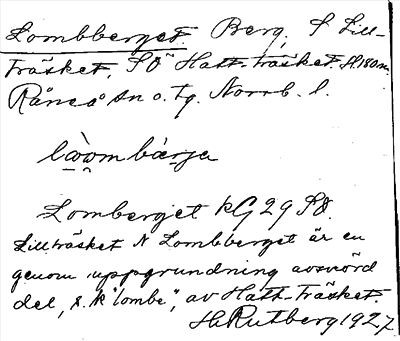 Lombberget. Berg, S Lill-
träsket, SO Hatt-träsket. H.180m.
Råneå sn o. tg. Norrb. l.
làọ̀mbærja
Lomberget KG 29 SO.
Lillträsket N Lombberget är en
genom uppgrundning avsnörd
del, s.k "lombe", av Hatt-Träsket.
H. Rutberg 1927